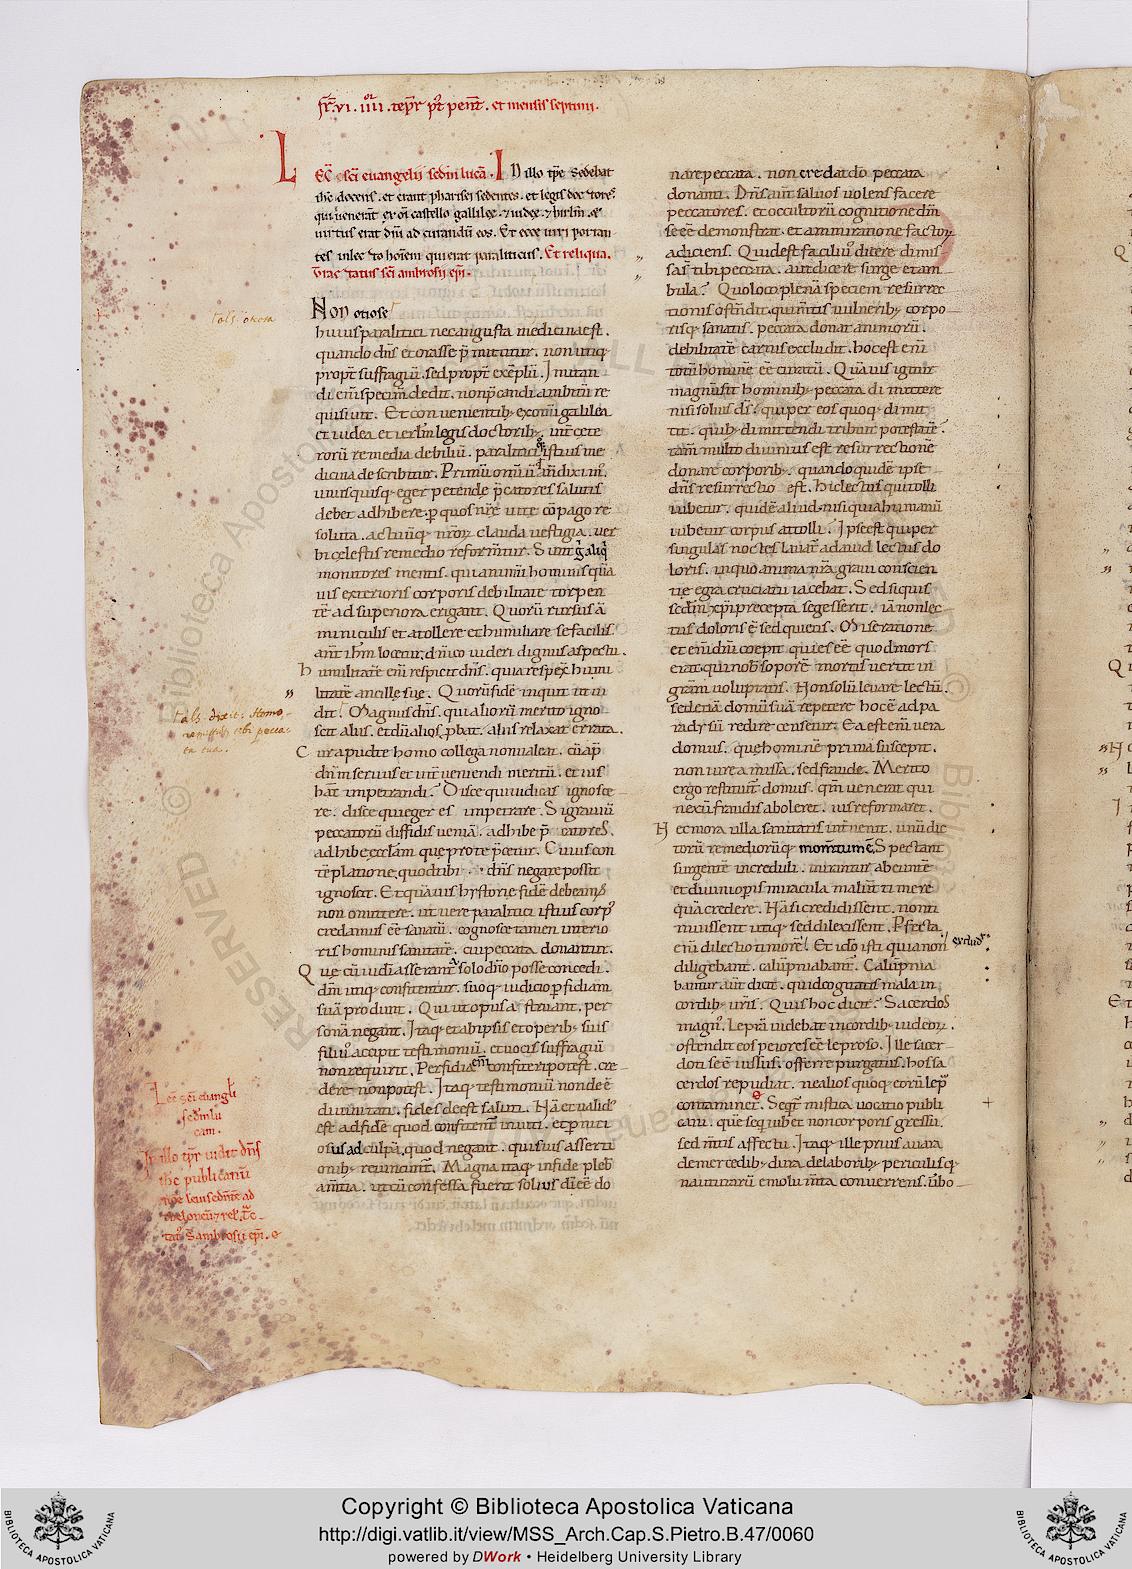 fr̄. vi. iiii. tēpr̄ pꝰt pent̄. et mensis septimi.
Lec̄. sc̄i euangelii scd̄m lucā. In illo tp̄r. Sedebat
ih̄c docens. et erant pharisei sedentes. et legis doctores.
qui uenerāt ex om̄i castello galilęę. ⁊ iudęę. ⁊ hirl̄m. ⁊
uirtus erat dn̄i ad curandū eos. Et ecce uiri portan
tes in lecto hoīem qui erat paraliticus. Et reliqua.
Tractatus sc̄i ambrosii ep̄i.
Non otiose
huius paralitici nec angusta medicina est.
quando dn̄s et orasse p̄mittitur. non utiq;
propt̄ suffragiū. sed propt̄ exēplū. Imitan
di em̄ specim̄ dedit. non p̄candi ambitū re
quisiuit. Et conuenientib; ex om̄i galilea
et iudea et ierl̄m legis doctorib; int̄ cete
rorū remedia debiliū. paralitici istius me
dicina describitur. Primū om̄iū ut an̄ diximꝰ.
unusquisq; eger petende p̄catores salutis
debet adhibere. p quos nr̄e uite cōpago re
soluta. actuūq; nr̄oꝝ clauda uestigia. uer
bi cęlestis remedio reformt̄ur. Sunt g̊ aliq̄
monitores mentis. qui animū hominis quā
uis exterioris corporis debilitate torpen
tē ad superiora erigant. Quorū rursus ā
miniculis et attollere et humiliare se facilis.
ant̄ ihm̄ locet̄ur. dn̄ico uideri dignus aspectu.
Humilitatē em̄ respicit dn̄s. quia respex̄ humi
litatē ancillę suę. Quorū fidē inquit ut ui
dit. Magnus dn̄s. qui aliorū merito igno
scit aliis. et dū alios p̄bat. aliis relaxat errata.
Cur apud te homo collega non ualeat. cū ap̄
dn̄m seruus et int̄ueniendi meritū. et ius
hab̄at impetrandi. Disce qui iudicas ignosce
re. disce qui eger es impetrare. Si grauiū
peccatorū diffidis ueniā. adhibe p̄catores.
adhibe eccl̄am que pro te p̄cetur. Cuius con
tēplatione quod tibi dn̄s negare possit
ignoscit. Et quāuis hystorie fidē debeamꝰ
non omittere. ut uere paralitici istius corpꝰ
credamus eē sanatū. cognosce tamen interio
ris hominis sanitatē. cui peccata donantur.
Que cū iudēi asserant a solo dn̄o posse concedi.
dm̄ utiq; confitentur. suoq; iudicio p̄fidiam
suā produnt. Qui ut opus astruant. per
sonā negant. Itaq; et ab ipsis et operib; suis
filiuꝰ accepit testimoniū. et uocis suffragiū
non requirit. Perfidia em̄ confiteri potest. cre
dere non potest. Itaq; testimoniū non deē
diuinitati. fides deest saluti. Nā et ualidꝰ
est ad fidē quod confitent̄ inuiti. et p̄niti
osius ad culpā. quod negant. qui suis asserti
onib; reuincunt̄. Magna itaq; infide pleb
amentia. ut cū confessa fuerit solius di eē do
nare peccata. non credat dō peccata
donanti. Dn̄s aut̄ saluos uolens facere
peccatores. et occultorū cognitione dm̄
se eē demonstrat. et ammiratione factoꝝ
adiciens. Quid est faciliuꝰ dicere dimis
sa st̄ tibi peccata. aut dicere surge et am
bula? Quo loco plenā speciem resurrec
tionis ostendit. qui mentis uulnerib; corpo
risq; sanatis. peccata donat animorū.
debilitatē carnis excludit. hoc est em̄
totū hominē eē curatū. Quāuis igitur
magnū sit hominib; peccata dimittere
nisi solus ds̄? qui per eos quoq; dimit
tit. quib; dimittendi tribuit potestatē.
tam̄ multo diuinius est resurrectionē
donare corporib;. quando quidē ipse
dn̄s resurrectio est. Hic lectus qui tolli
iubetur. quid ē aliud. nisi quia humanū
iubetur corpus attolli. Ipse est qui per
singulas noctes lauat̄ a dauid lectus do
loris. in quo anima nr̄a graui conscien
tie egra cruciatu iacebat. Sed si quis
scd̄m xp̄i precepta se gesserit. iā non lec
tus doloris ē sed quietis. Miseratione
et em̄ dn̄i coepit quies eē quod mors
erat. qui nob̄ soporē mortis uertit in
gr̄am uoluptatis. Non solū leuare lectū.
sed etiā domū suā repetere hoc ē ad pa
radysū redire censetur. Ea est em̄ uera
domus. que hominē prima suscepit.
non iure amissa. sed fraude. Merito
ergo restituit̄ domus. qm̄ uenerat qui
nexū fraudis aboleret. ius reformaret.
Nec mora ulla sanitatis int̄uenit. unū dic
torū remediorūq; mom̄tum ē. Spectant
surgentē increduli. mirantur abeuntē
et diuini opis miracula malunt timere
quā credere. Nā si credidissent. non ti
muissent utiq; sed dilexissent. Pfecta
em̄ dilectio timorē. Et idō isti quia non excludit
diligebant. calūpniabant̄. Calūpnia
bantur aut̄ dicit̄. quid cogitatis mala in
cordib; ur̄is. Quis hoc dicit? Sacerdos
magnꝰ. Leprā uidebat in cordib; iudeoꝝ.
ostendit eos peiores eē leproso. Ille sacer
doti se ē iussus offerre purgatus. hos sa
cerdos repudiat. ne alios quoq; eorū lep̄
contaminet. Seqt̄ mistica uocatio publi
cani. que sequi iubet non corporis gressu.
sed mt̄is affectu. Itaq; ille prius auara
de mercedib; dura de laborib; periculisq;
nautarū emolum̄ta conuerrens. ūbo
als. otiosa
als. dixit: Homo
remissa sūt tibi pecca-
ta tua.
Lec̄. sc̄i euangl̄i
scd̄m lu
cam.
In illo tp̄r uidit dn̄s
ih̄c publicanū
noīe leui sedētē ad
theloneū ⁊ rel̄. Trac
tatꝰ S. ambrosii ep̄i.
Copyright © Biblioteca Apostolica Vaticana
http://digi.vatlib.it/view/MSS_Arch.Cap.S.Pietro.B.47/0060
powered by DWork • Heidelberg University Library
BIBLIOTECA APOSTOLICA VATICANA
BIBLIOTECA APOSTOLICA VATICANA